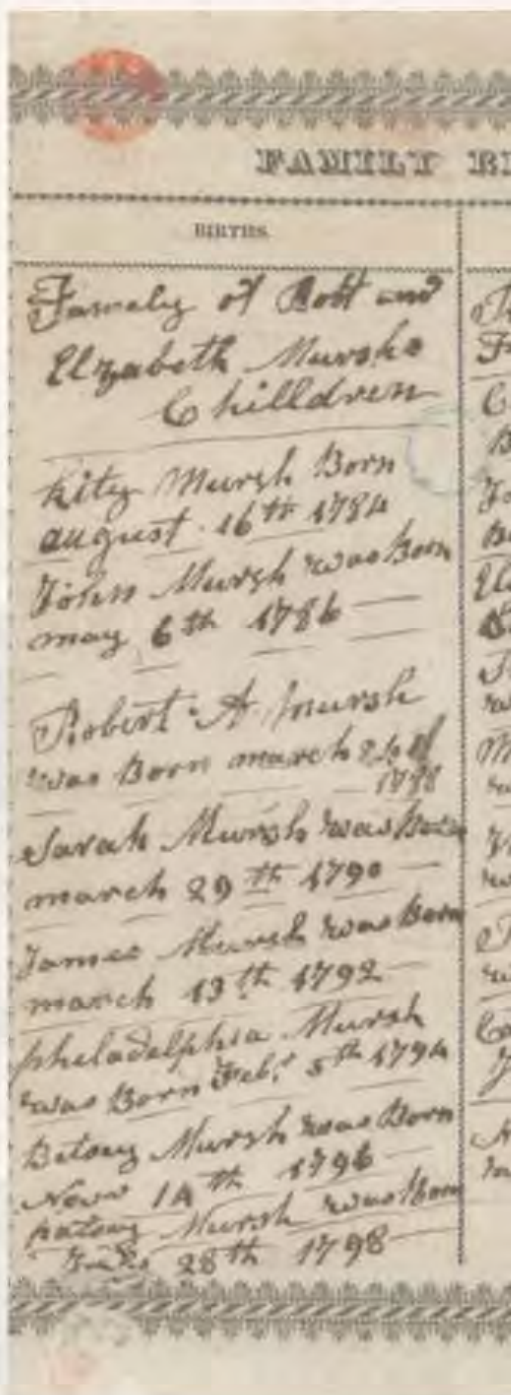 FAMILY RE
BIRTHS.
Famely of Robt and
Elzabeth Mursh's
Chilldren
kity Mursh Born
august 16th 1784
John Mursh was Born
may 6th 1786
Robert A Mursh
was Born march
1788
Sarah Mursh was Born
march 29th 1790
James Mursh was Born
march 13th 1792
pheladelphia Mursh
was Born Feb. 5th 1794
Betsey Mursh was Born
Novr 14th 1796
patsey Mursh was Born
28th 1798